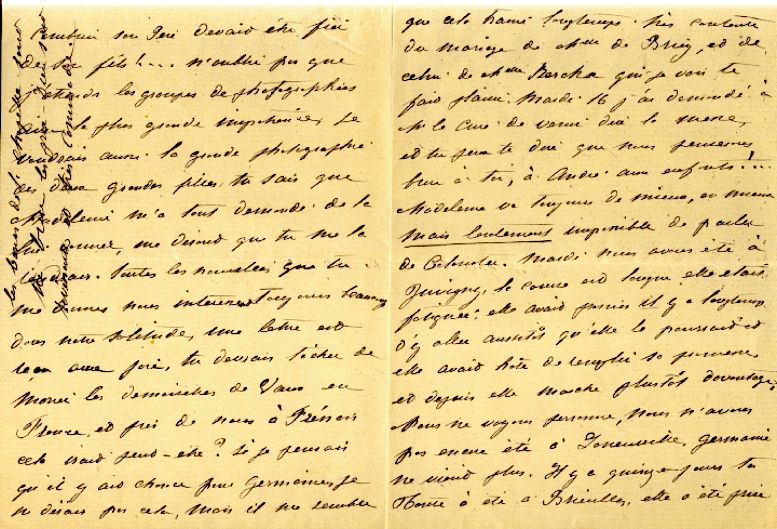 combien son Père devait être fier
de son fils !... n'oublie pas que
j'attends les groupes de photographies
avec la plus grande impatience, je
voudrais aussi la grande photographie
des deux grandes filles, tu sais que
Madeleine m'a tant demandé de la
lui donner, me disant que tu me la
Toutes les nouvelles que tu
me donnes nous intéressent toujours beaucoup
dans notre solitude, une lettre est
reçue avec joie, tu devrais tâcher de
marier les demoiselles de Vaux en
France, et près de nous à Frésnois
cela irait peut-être ? si je pensais
qu'il y ait chance pour Germaine, je
ne dirais pas cela, mais il me semble
que cela traine longtemps. très contente
du mariage de Melle de Briey, et de
celui de Melle qui je vois te
fait plaisir. Mardi 16 j'ai demandé à
Mr le Curé de venir dire la messe,
et tu peux te dire que nous penserons
bien à toi, à André aux enfants !...
Madeleine va toujours de mieux, en mieux
mais lentement impossible de parler
de Mardi nous avons été à
Juvigny, la course est longue elle était
fatiguée ; elle avait promis il y a longtemps
d'y aller aussitôt qu'elle le pourrait et
elle avait hâte de remplir sa promesse,
et depuis elle marche plustôt davantage,
Nous ne voyons personne, nous n'avons
pas encore été à Louppy, Germaine
ne vient plus. Il y a quinze jours ta
Tante a été à Brieulles, elle a été prise